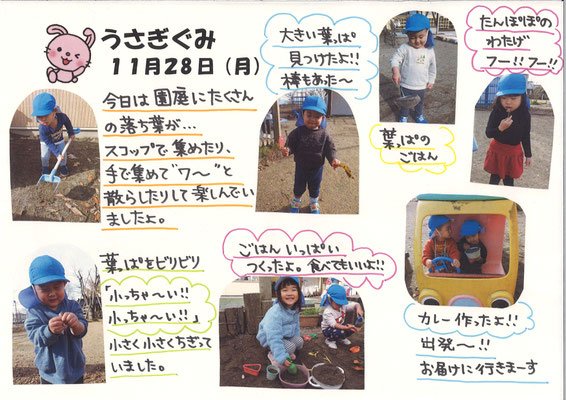 うさぎぐみ
11月28日（月）
今日は園庭にたくさん
の落ち葉が…
スコップで集めたり、
手で集めて"ワ〜"と
散らしたりして楽しんでい
ましたよ。
大きい葉っぱ
見つけたよ!!
棒もあた〜
葉っぱの
ごはん
たんぽぽの
わたげ
フー!!フー!!
葉っぱをビリビリ
「小っちゃ〜い!!
小っちゃ〜い!!」
小さく小さくちぎって
いました。
ごはんいっぱい
つくったよ。食べてもいいよ!!
カレー作ったよ!!
出発〜!!
お届けに行きまーす